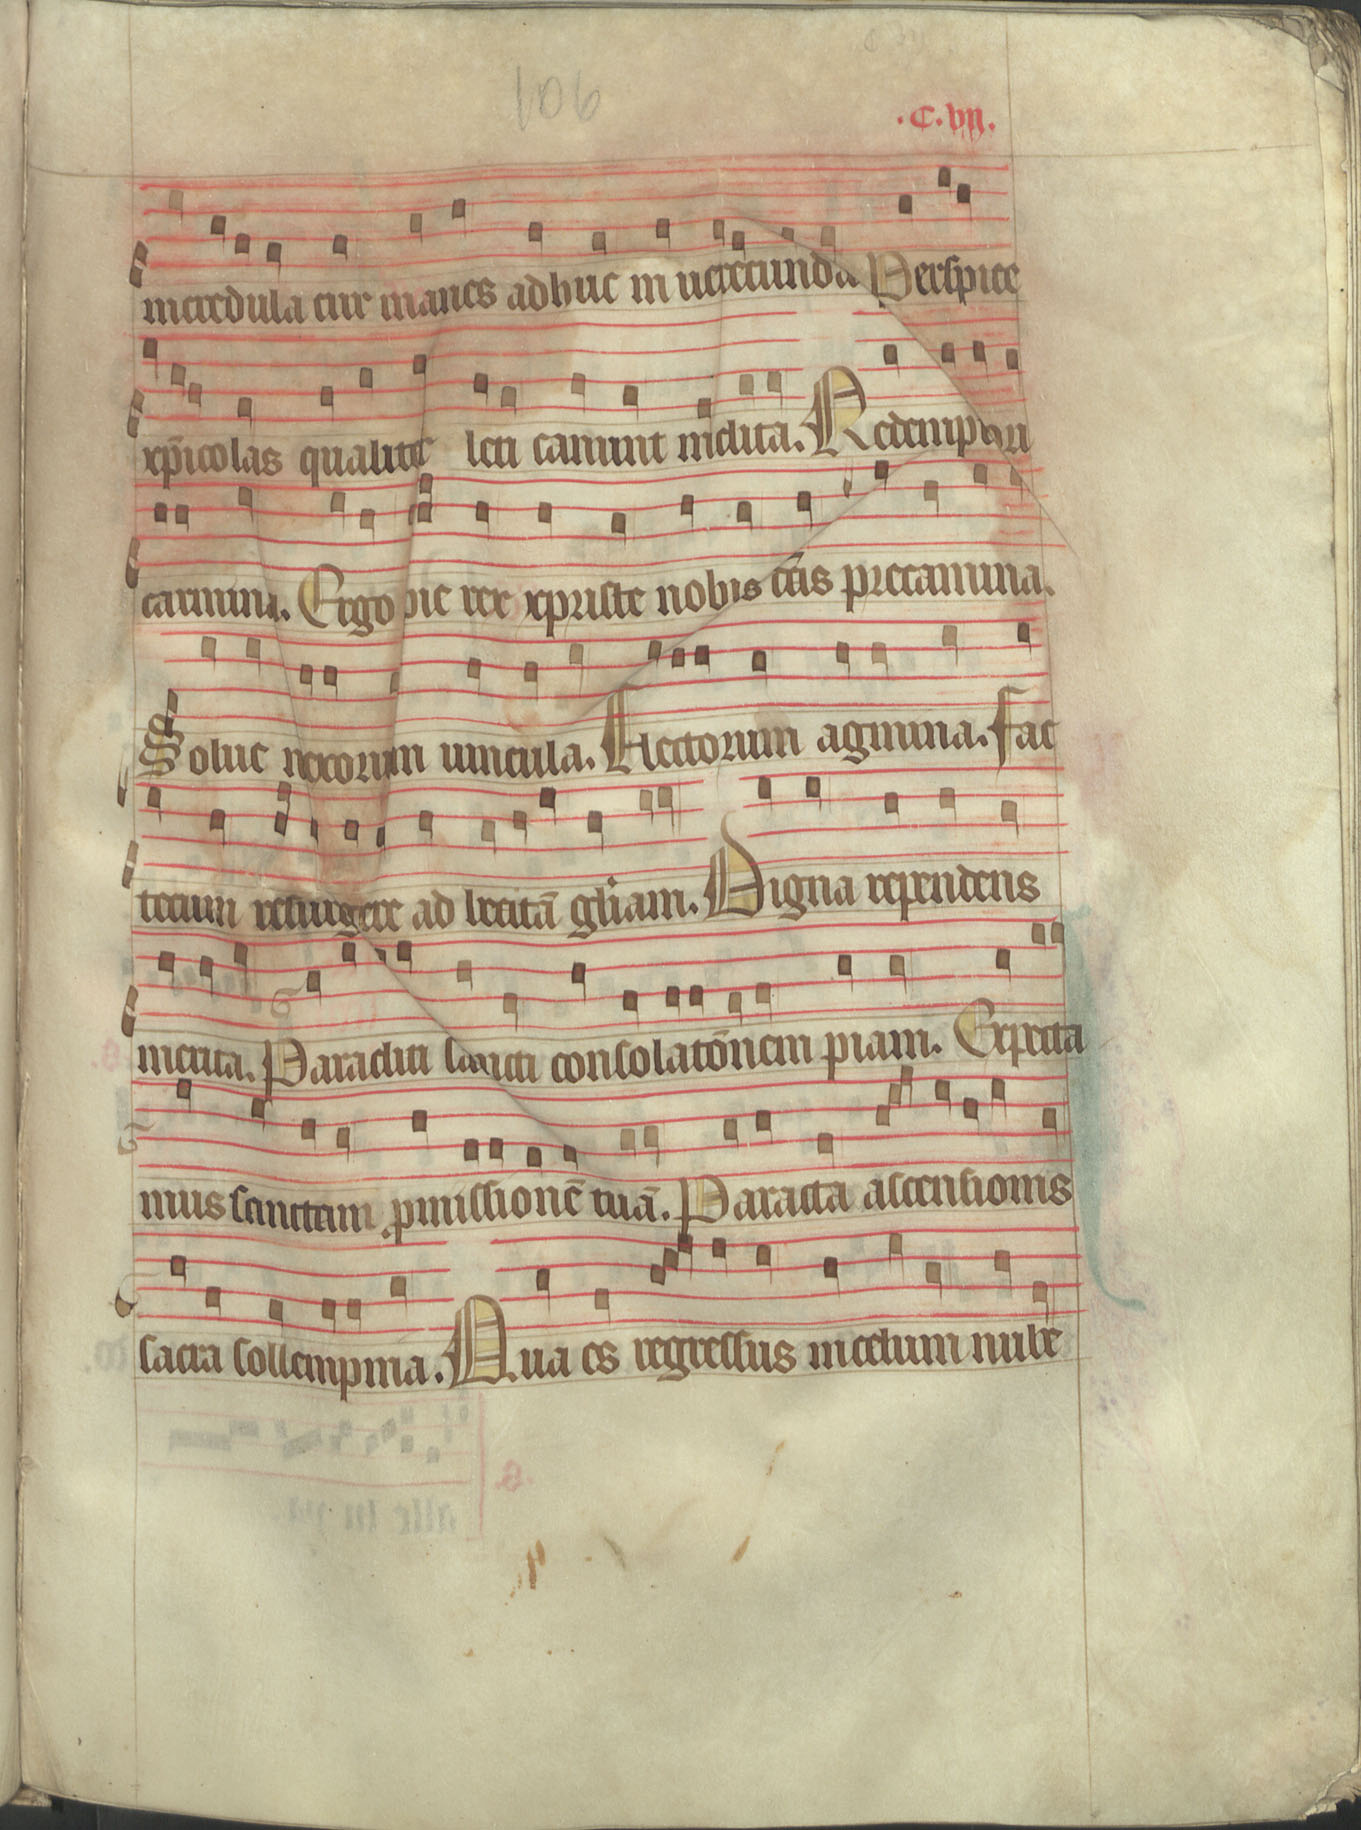 106
.C.vii.
incredula cur manes adhuc in uerecunda Perspice
xp̄icolas qualiter leti canunt inclita. Redemptori
carmina. Ergo pie rex xpriste nobis c̄tis precamina.
Solue nexorum uincula. Electorum agmina. Fac
tecum resurgere ad beatā gl̄iam. Digna rependens
merita. Paracliti sancti consolatōnem piam. Expecta
mus sanctam p̱missionē tuā. Paracta ascensionis
sacra sollempnia. Qua es regressus in celum nube